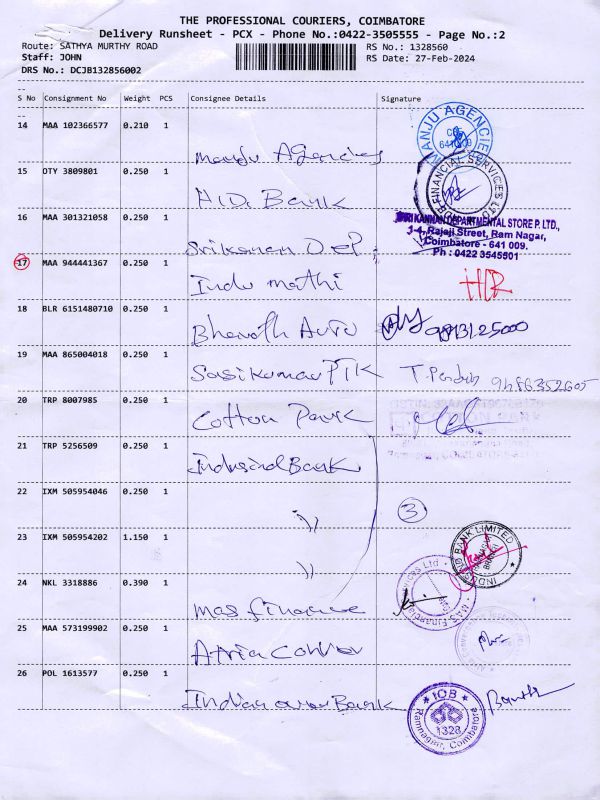 THE PROFESSIONAL COURIERS, COIMBATORE
Delivery Runsheet - PCX - Phone No.:0422-3505555 - Page No.:2
Route: SATHYA MURTHY ROAD
RS No.: 1328560
Staff: JOHN
RS Date: 27-Feb-2024
DRS No.: DCJB132856002
S No Consignment No Weight PCS Consignee Details Signature
14 MAA 102366577 0.210 1
Manju Agencies
MANJU AGENCIES
15 OTY 3809801 0.250 1
Bank
FINANCIAL SERVICES
16 MAA 301321058 0.250 1
Srikanan Dep
SRI KANNAN DEPARTMENTAL STORE P. LTD.,
3-4, Rajaji Street, Ram Nagar,
Coimbatore - 641 009.
Ph : 0422 3545501
17 MAA 944441367 0.250 1
Indu mathi
18 BLR 6151480710 0.250 1
Bharath Auto
19 MAA 865004018 0.250 1
Sasikumar PTK
20 TRP 8007985 0.250 1
Cotton Park
21 TRP 5256509 0.250 1
Indusind Bank
22 IXM 505954046 0.250 1
"
3
23 IXM 505954202 1.150 1
"
BANK LIMITED
24 NKL 3318886 0.390 1
mas finance
25 MAA 573199902 0.250 1
Atria
26 POL 1613577 0.250 1
Indian over Bank
IOB
1328
Ramnagar, Coimbatore